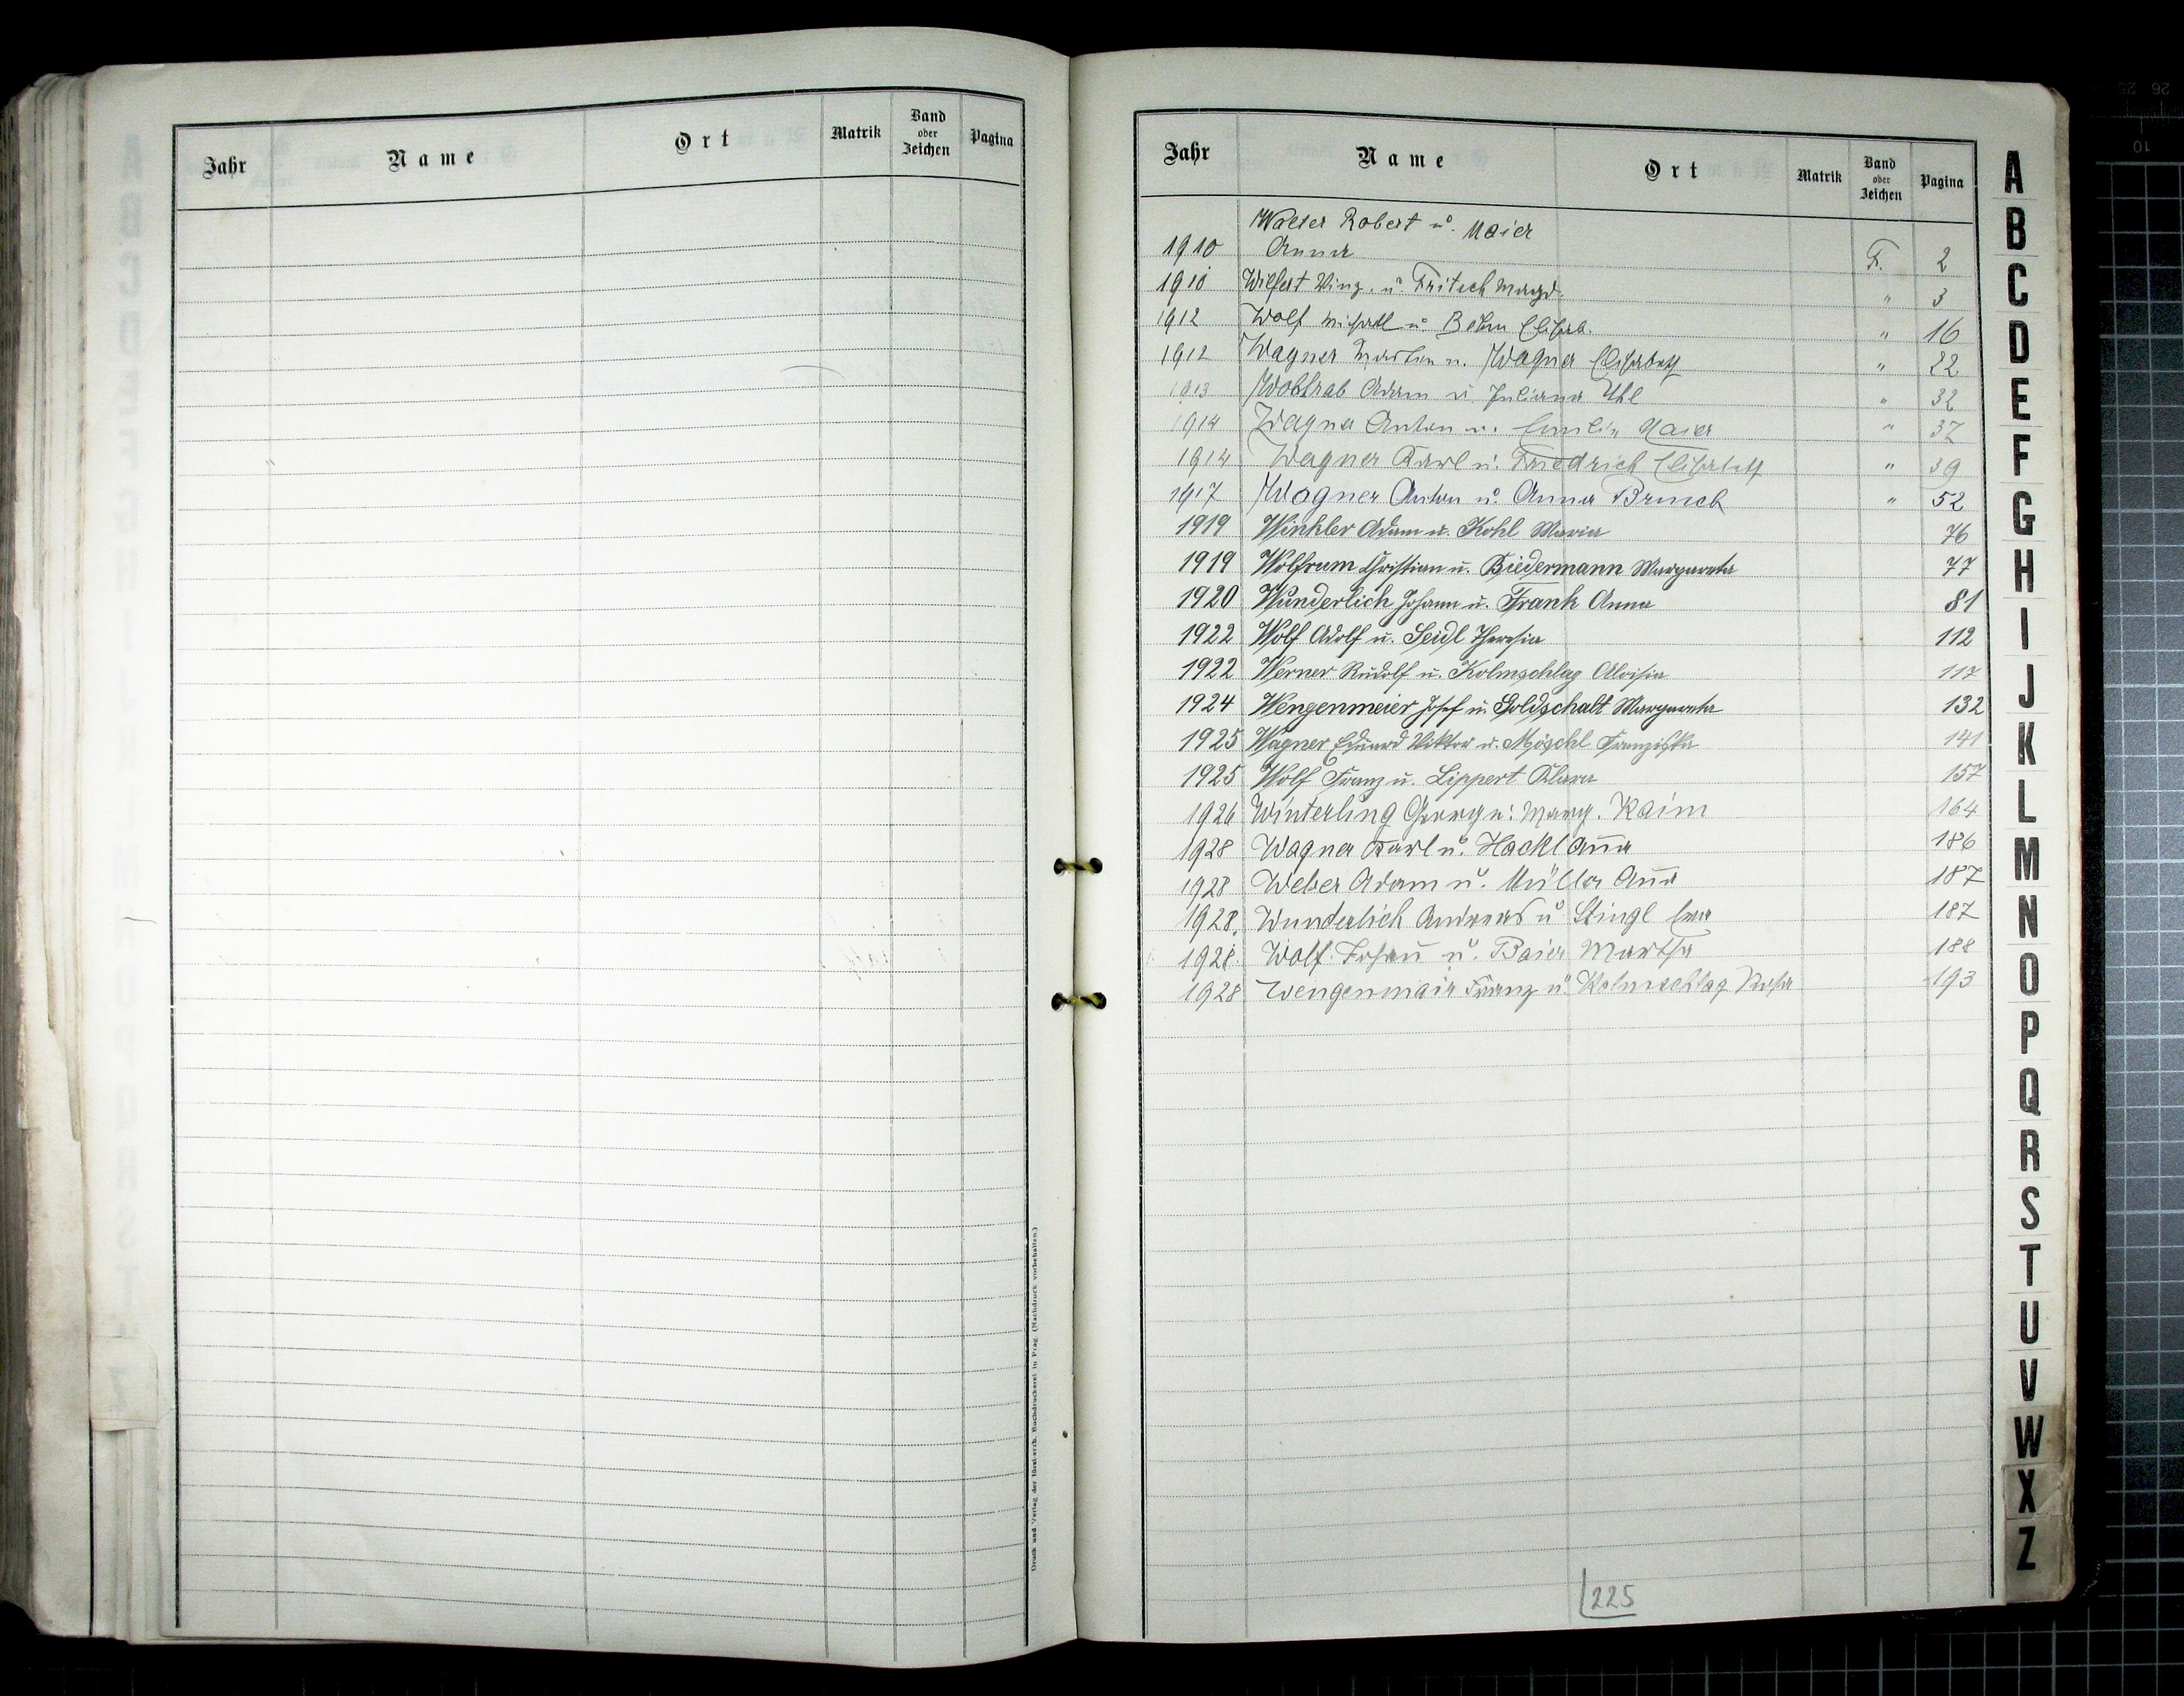 Jahr Name Ort Matrik Band oder Zeichen Pagina
Druck und Verlag der fürsterzb. Buchdruckerei in Prag. (Nachdruck vorbehalten.)
Jahr Name Ort Matrik Band oder Zeichen Pagina
Robert u. Maier
1910 Anna F. 2
1910 Wilfert Winz. u. Fritsch Magd. " 3
1912 Wolf Michael u. Böhm Elisab. " 16
1912 Wagner Martin u. Wagner Elisabeth " 22
1913 Wohlrab Adam u. Juliana Uhl " 32
1914 Wagner Anton u. Emilie Maier " 37
1914 Wagner Karl u. Friedrich Elisabeth " 39
1917 Wagner Anton u. Anna " 52
1919 Winkler Adam u. Kohl Maria 76
1919 Wolfrum Christian u. Biedermann Margareta 77
1920 Wunderlich Johann u. Frank Anna 81
1922 Wolf Adolf u. Seidl Theresia 112
1922 Werner Rudolf u. Kolmschlag Aloisia 117
1924 Wengenmeier Josef u. Goldschalt Margareta 132
1925 Wagner Eduard Viktor u. Möschl Franziska 141
1925 Wolf Franz u. Lippert Klara 157
1926 Winterling Georg u. Marg. Kaim 164
1928 Wagner Karl u. Hackl Aña 186
1928 Weber Adam u. Müller Aña 187
1928. Wunderlich Andreas u. Stingl Eva 187
1928. Wolf Johañ u. Baier Martha 188
1928 Wengenmair Franz u. Kolmschlag Rosa 193
225
A
B
C
D
E
F
G
H
I
J
K
L
M
N
O
P
Q
R
S
T
U
V
W
X
Z